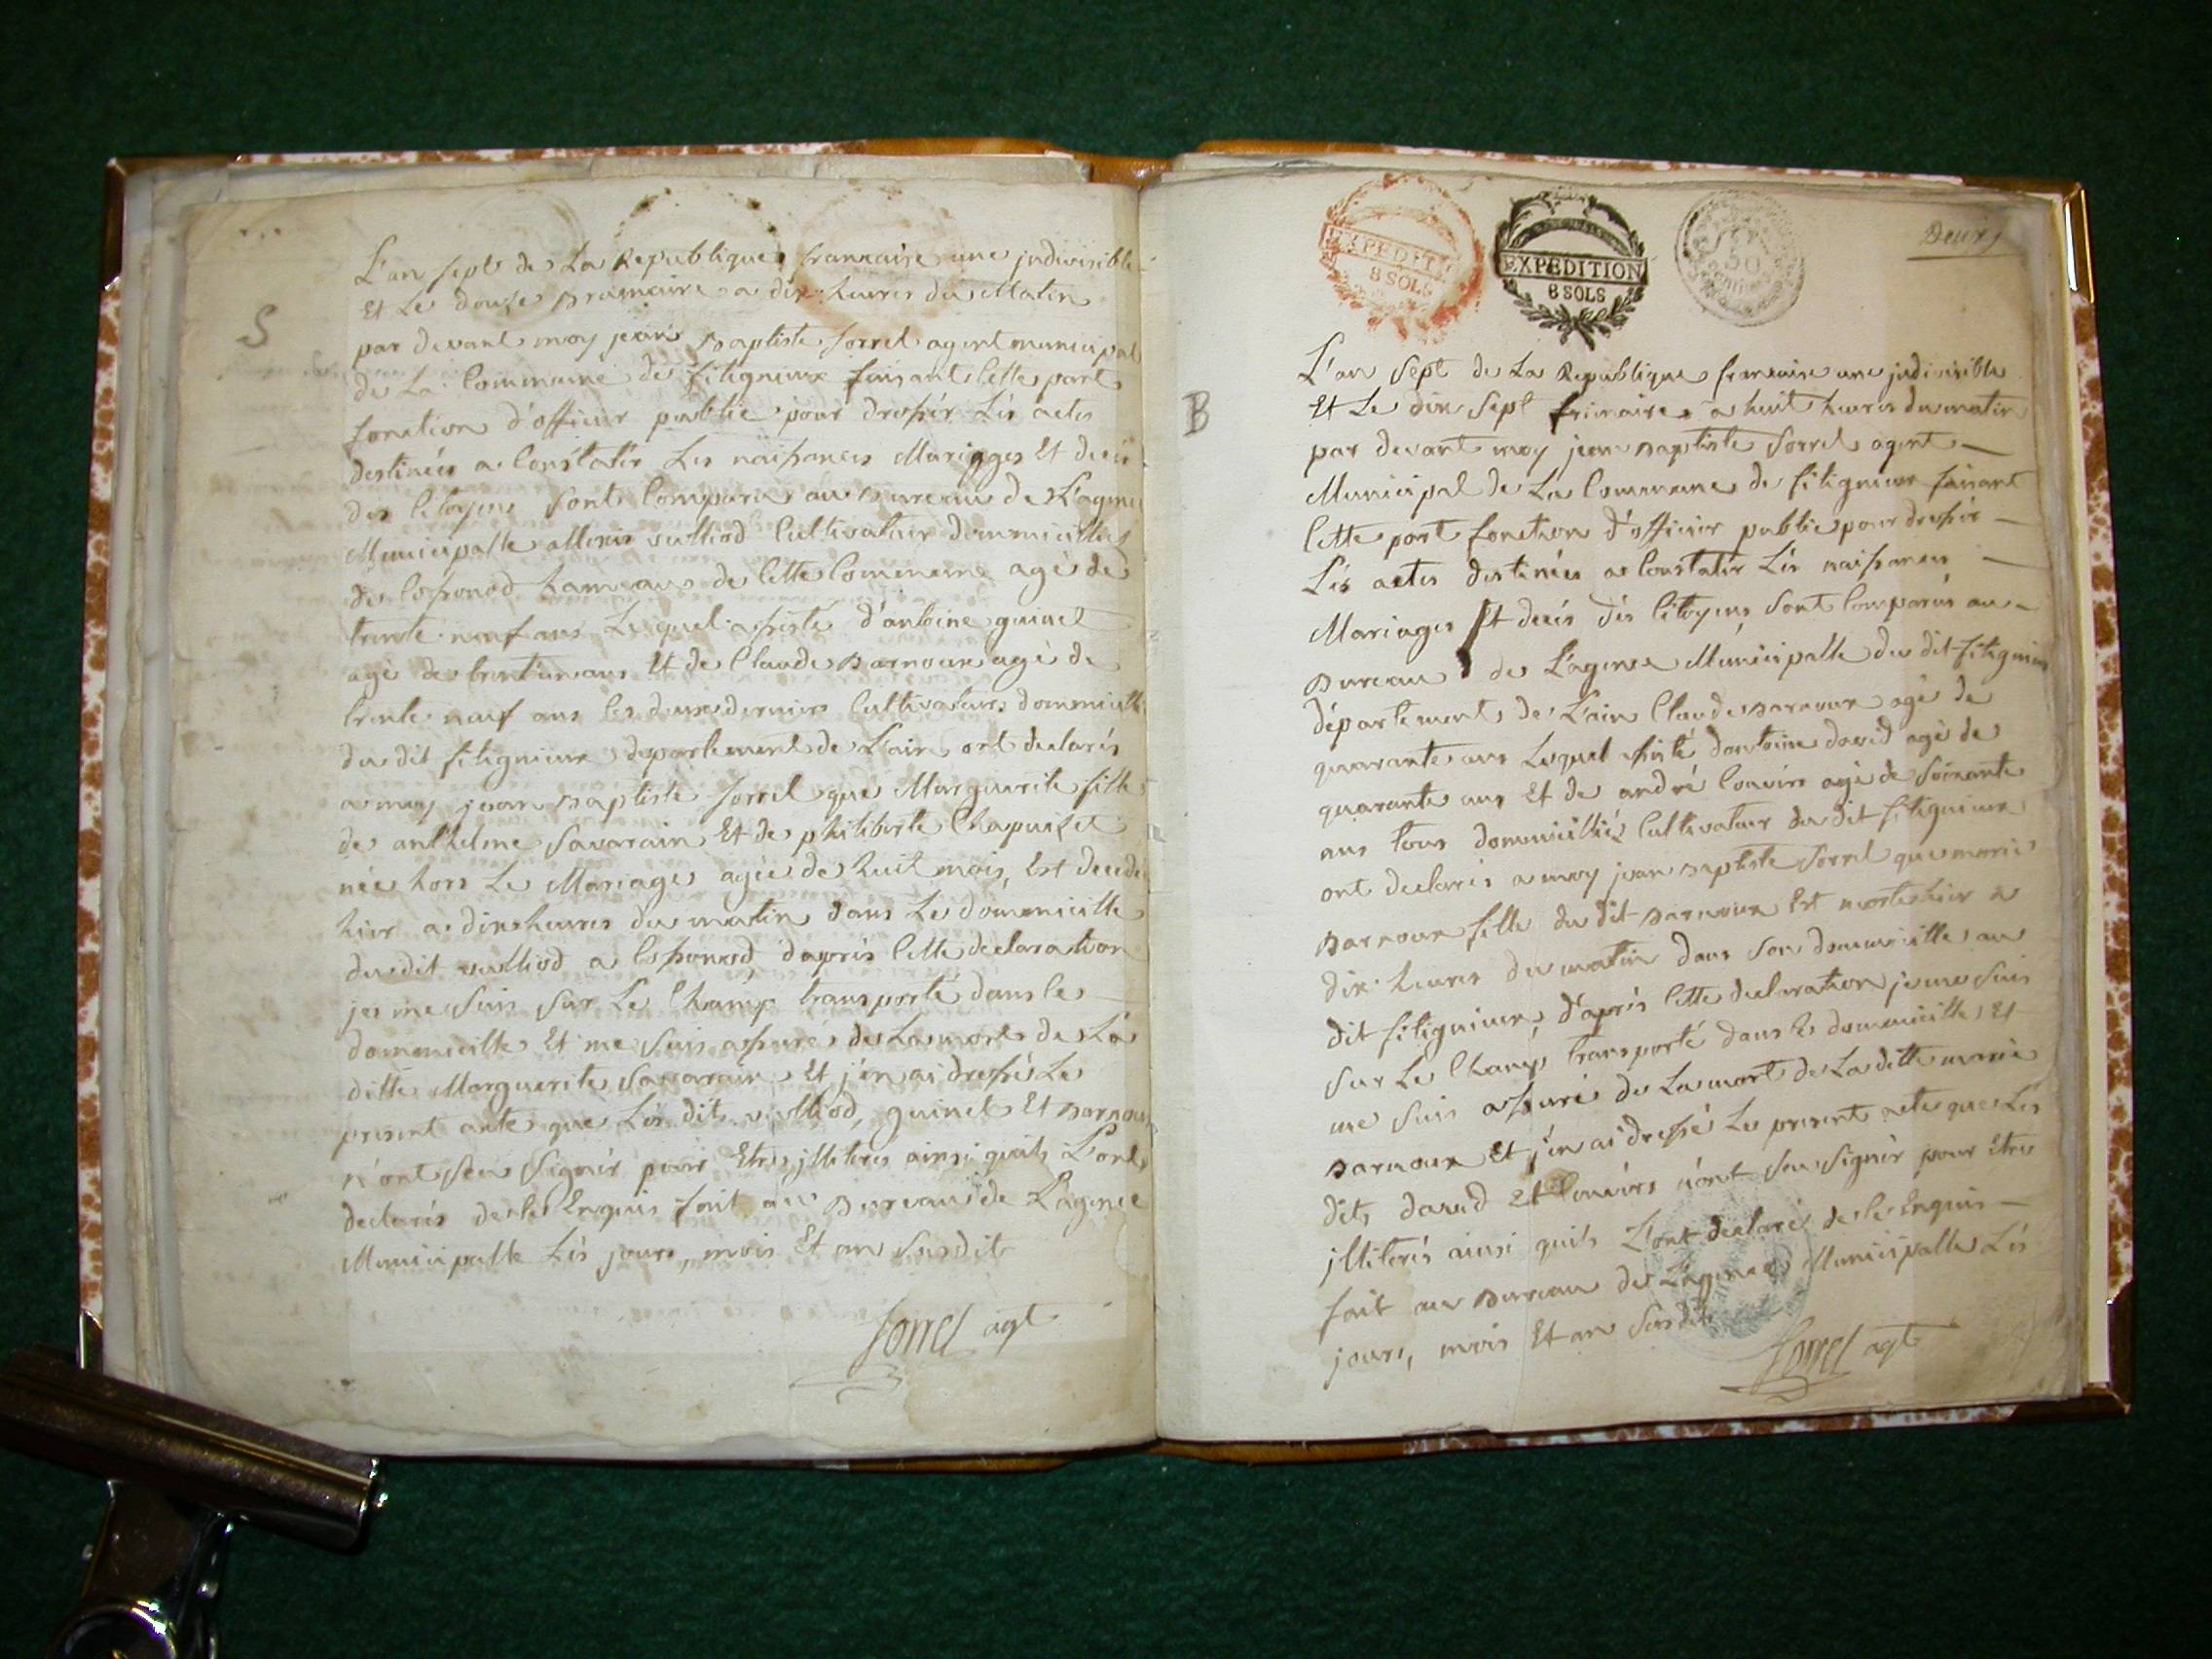 S
L'an sept de La Republique francaise une jndivisible
Et Le douze Brumaire a dix heures du Matin
par devant moy jean Baptiste Sorrel agent municipal
de La Commune de fitignieux faisant Cette part
fonction d'officier public pour dressér Lés actes
destinées a Constatér Les naissances Mariages Et decés
des Citoyens Sont Comparus au Bureau de L'agence
Municipalle Alexis vulliod Cultivateur dommicillié
de Cossonod hameau de Cette Commune agè de
trente neuf ans Lequel assisté d'antoine guinet
agè de trent'un ans Et de Claude Barnoux agè de
trente neuf ans Les deux derniers Cultivateurs dommicilli
du dit fitignieux departement de L'ain ont declarés
a moy jean Baptiste Sorrel que Marguerite fille
de anthelme Savarain Et de philiberte Chapuizet
née hors Le Mariage agèe de huit mois, Est decedée
hier a dix heures du matin dans Le dommicille
du dit vulliod a Cossonod, daprés Cette declaration
je me Suis Sur Le Champ transporté dans le
dommicille Et me Suis assuré de La mort de La
ditte Marguerite Savarrain Et j'en ai dressé Le
present acte que Lés dits vulliod, guinet Et Barnoux
n'ont Seu Signér pour Etre jlliteres ainsi quils L'ont
declarés de Ce Enquis fait au Bureau de L'agence
Municipalle Lés jours, mois Et an Susdits
Sorrel agt
EXPEDITION
8 SOLS
EXPEDITION
8 SOLS
50
Deux
B
L'an Sept de La Republique francaise une jndivisible
Et Le dix Sept frimaire a huit heures du matin
par devant moy jean Baptiste Sorrel agent
Municipal de La Commune de fitignieux faisant
Cette part fonction d'officier public pour dressér
Lés actes destinées a Constatér Lés naissances
Mariages Et decés dés Citoyens Sont Comparus au
Bureau de L'agence Municipalle du dit fitignieux
département de L'ain Claude Barnoux agè de
quarante ans Lequel assisté dantoine david agè de
quarante ans Et de andré Couvirs agè de Soixante
ans tous dommicilliés Cultivateur du dit fitignieux
ont declarés a moy jean Baptiste Sorrel que marie
Barnoux fille du dit Barnoux Est morte hier a
dix heures du matin dans Son dommicille au
dit fitignieux, d'aprés Cette declaration je me Suis
Sur Le Champ transporté dans le dommicille Et
me Suis assuré de La mort de La ditte marie
Barnoux Et j'en ai dressé Le present acte que Les
dits david Et Couvirs n'ont Seu Signér pour Etre
jlliterés ainsi quils L'ont declaré de Ce Enquis
fait au Bureau de L'agence Municipalle Lés
jours, mois Et an Susdits
Sorrel agt